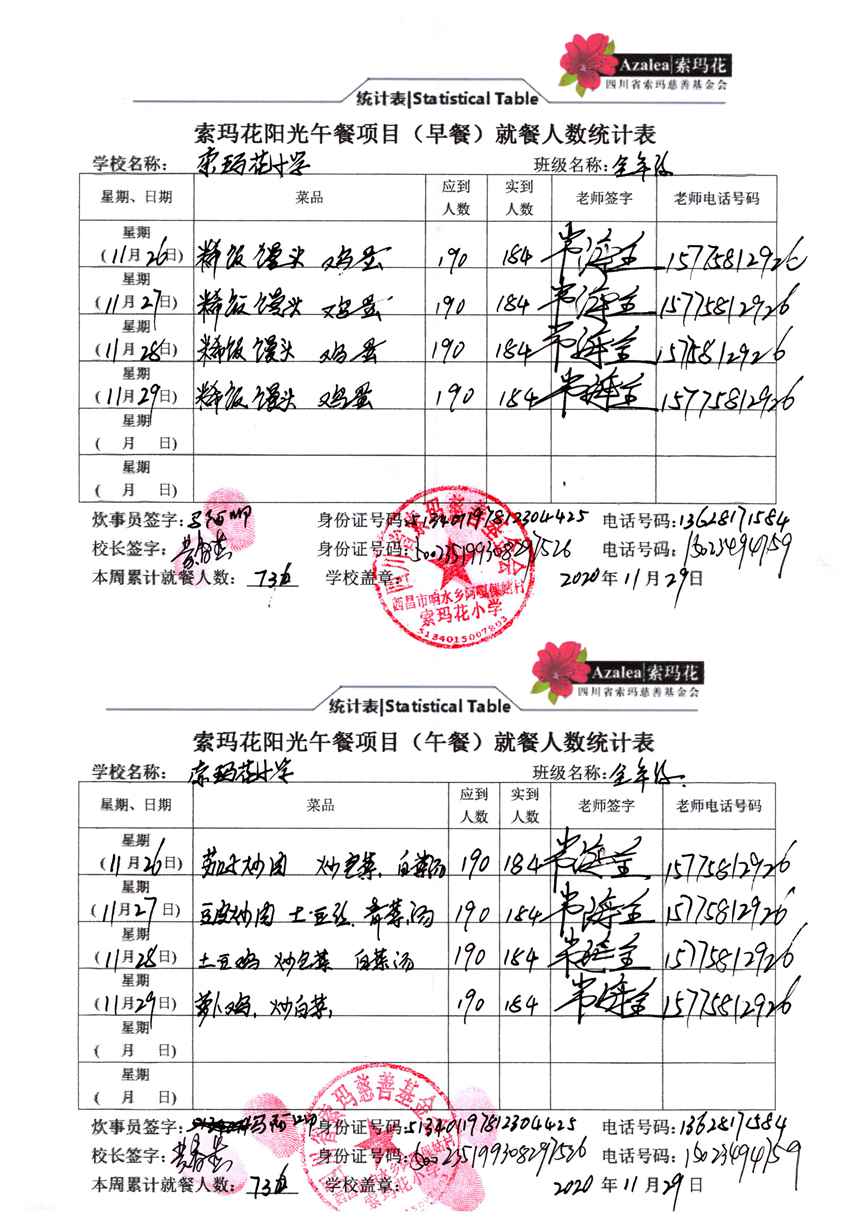 Azalea|索玛花
四川省索玛慈善基金会
统计表|Statistical Table
索玛花阳光午餐项目（早餐）就餐人数统计表
学校名称： 索玛花小学 班级名称：全年级
星期、日期 菜品 应到人数 实到人数 老师签字 老师电话号码
星期
(11月26日) 稀饭 馒头 鸡蛋 190 184 15775812926
星期
(11月27日) 稀饭 馒头 鸡蛋 190 184 15775812926
星期
(11月28日) 稀饭 馒头 鸡蛋 190 184 15775812926
星期
(11月29日) 稀饭 馒头 鸡蛋 190 184 15775812926
星期
( 月 日)
星期
( 月 日)
炊事员签字： 身份证号码：513401197812304425 电话号码：13628171584
校长签字： 身份证号码：500235199308297526 电话号码：15023494759
本周累计就餐人数： 736 学校盖章： 2020年11月29日
四川省索玛慈善基金会
西昌市响水乡
索玛花小学
5134015007803
Azalea|索玛花
四川省索玛慈善基金会
统计表|Statistical Table
索玛花阳光午餐项目（午餐）就餐人数统计表
学校名称： 索玛花小学 班级名称：全年级.
星期、日期 菜品 应到人数 实到人数 老师签字 老师电话号码
星期
(11月26日) 茄子炒肉 炒包菜. 白菜汤 190 184 15775812926
星期
(11月27日) 豆腐炒肉 土豆丝. 青菜汤 190 184 15775812926
星期
(11月28日) 土豆鸡 炒包菜 白菜汤 190 184 15775812926
星期
(11月29日) 萝卜鸡. 炒白菜. 190 184 15775812926
星期
( 月 日)
星期
( 月 日)
炊事员签字： 身份证号码：513401197812304425 电话号码：13628171584
校长签字： 身份证号码：500235199308297526 电话号码：15023494759
本周累计就餐人数： 736 学校盖章： 2020年11月29日
四川省索玛慈善基金会
索玛花小学